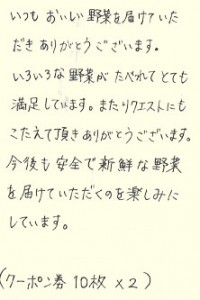 いつも おいしい 野菜を届けていた
だき ありがとうございます。
いろいろな野菜が たべれて とても
満足しています。またリクエストにも
こたえて頂きありがとうございます。
今後も安全で新鮮な野菜
を届けていただくのを楽しみに
しています。
(クーポン券 10枚 x2)